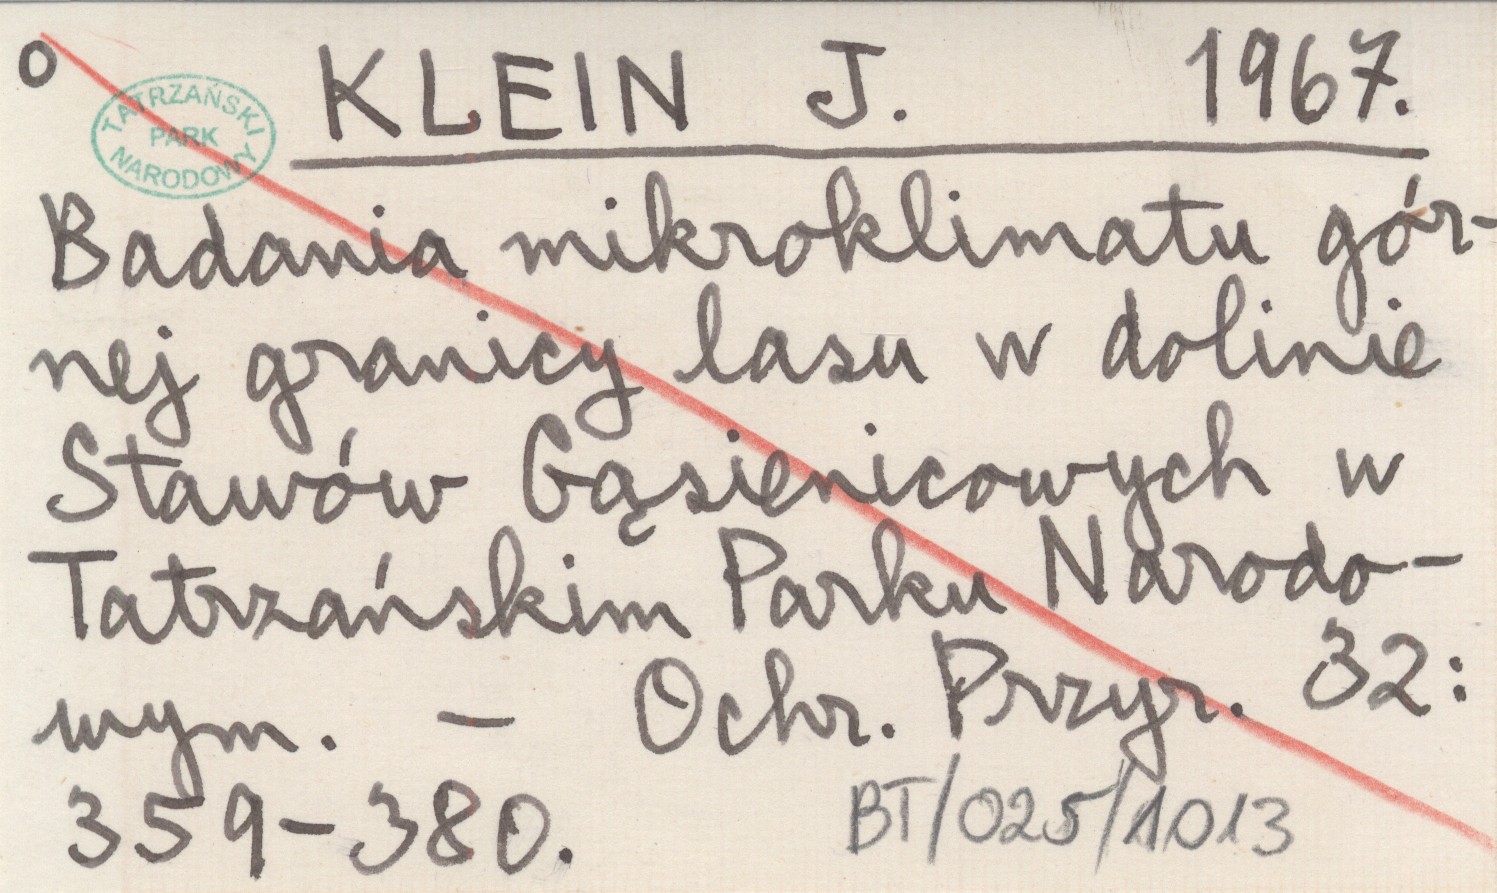 o KLEIN J. 1967.
TATRZAŃSKI
PARK
NARODOWY
Badania mikroklimatu gór-
nej granicy lasu w dolinie
Stawów Gąsienicowych w
Tatrzańskim Parku Narodo-
wym. - Ochr. Przyr. 32:
359-380.
BT/025/1013